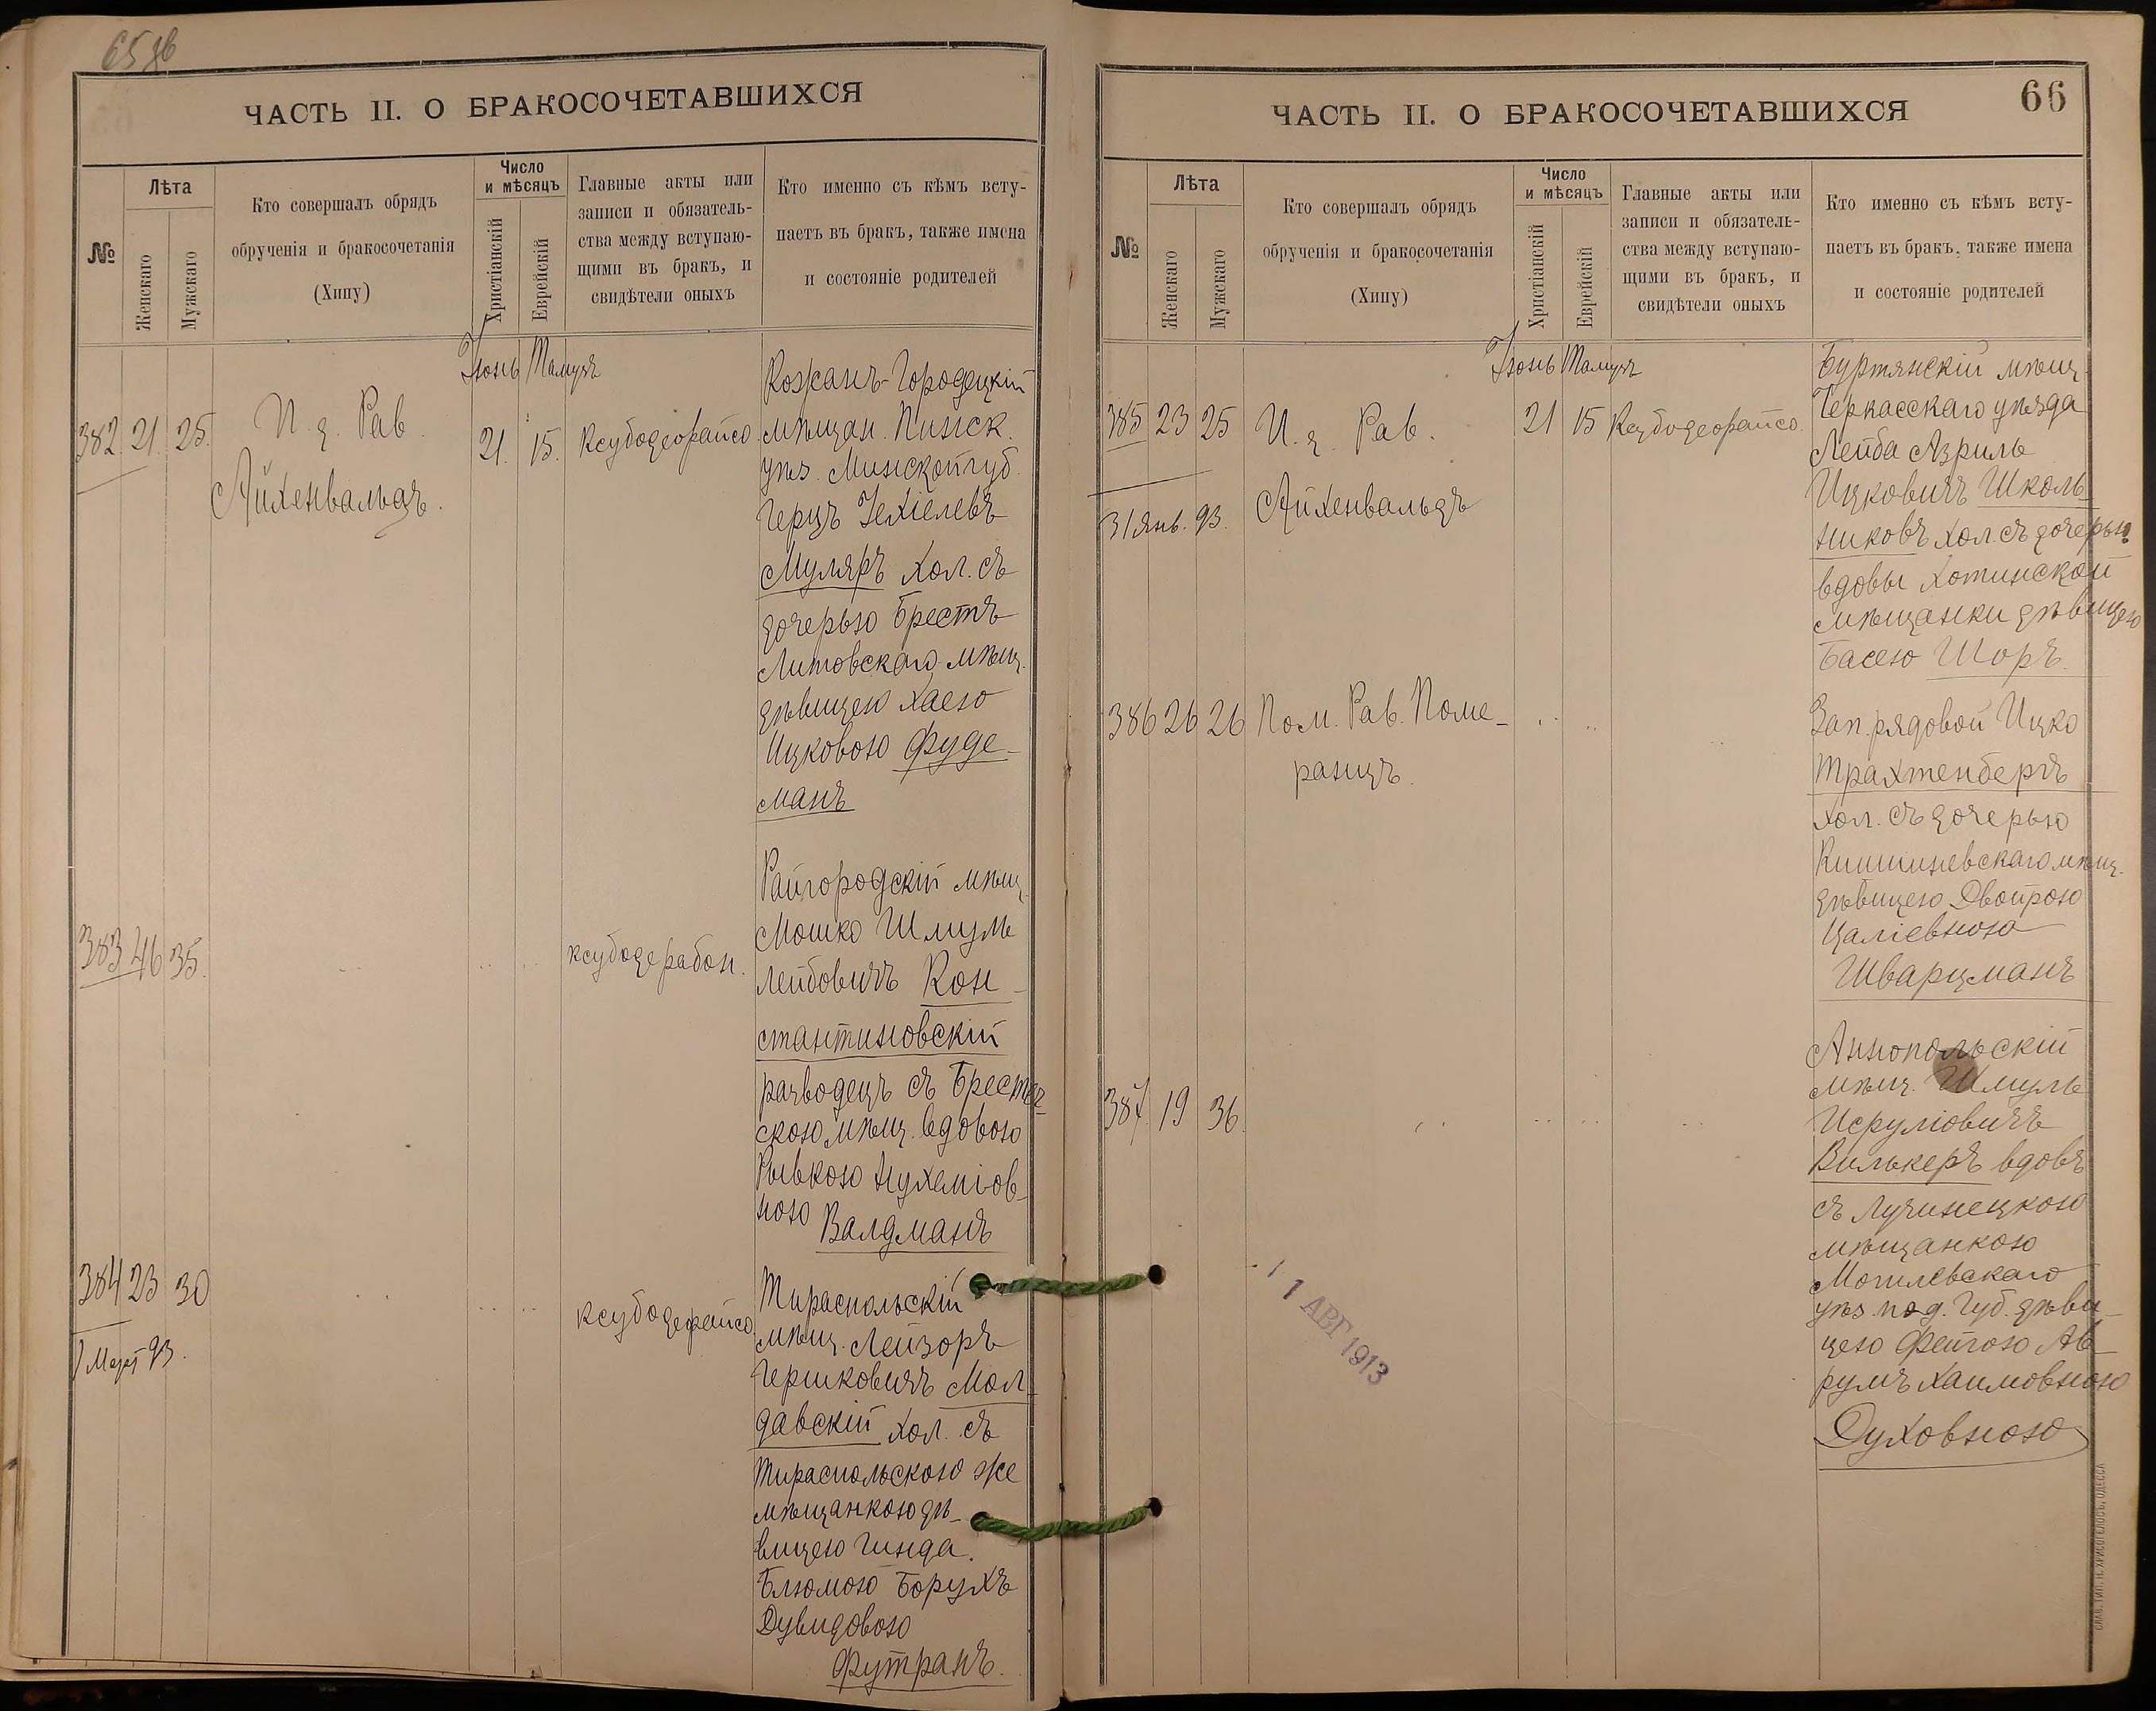 65 об
ЧАСТЬ II. О БРАКОСОЧЕТАВШИХСЯ
№
Лѣта
Женскаго
Мужскаго
Кто совершалъ обрядъ
обрученія и бракосочетанія
(Хипу)
Число
и мѣсяцъ
Христіанскій
Еврейскій
Главные акты или
записи и обязатель-
ства между вступаю-
щими въ бракъ, и
свидѣтели оныхъ
Кто именно съ кѣмъ всту-
паетъ въ бракъ, также имена
и состояніе родителей
Іюнь Тамузъ
382. 21. 25.
И. д. Рав.
Айхенвальдъ.
21. 15.
Ксубодеорайсо.
Кожанъ-Городецкій
мѣщан. Пинск.
уѣз. Минской губ.
Герцъ Іехіелевъ
Муляръ хол. съ
дочерью Брестъ
Литовскаго мѣщ.
дѣвицею Хаею
Ицковою Фуде-
манъ
383 46 35.
ксубодерабон.
Райгородскій мѣщ.
Мошко Шмуль
Лейбовичъ Кон-
стантиновскій
разводецъ съ Брестъ-
скою мѣщ. вдовою
Рывкою Нухемов-
ною Валдманъ
384 23 30
1 Март 93.
ксубодерайсо.
Тираспольскій
мѣщ. Лейзоръ
Гершковичъ Мол-
давскій хол. съ
Тираспольскою же
мѣщанкою дѣ-
вицею Гинда.
Блюмою Борухъ
Дувидовою
Футранъ.
ЧАСТЬ II. О БРАКОСОЧЕТАВШИХСЯ
66
№
Лѣта
Женскаго
Мужскаго
Кто совершалъ обрядъ
обрученія и бракосочетанія
(Хипу)
Число
и мѣсяцъ
Христіанскій
Еврейскій
Главные акты или
записи и обязатель-
ства между вступаю-
щими въ бракъ, и
свидѣтели оныхъ
Кто именно съ кѣмъ всту-
паетъ въ бракъ, также имена
и состояніе родителей
Іюнь Тамузъ
385 23 25
31 Янв. 93.
И. д. Рав.
Айхенвальдъ
21 15
Ксубодеорайсо.
Буртянскій мѣщ.
Черкасскаго уѣзда
Лейба Азриль
Ицковичъ Школь-
никовъ хол. съ дочерью
вдовы Хотинской
мѣщанки дѣвицею
Басею Шоръ.
386 26 26
Пом. Рав. Поме-
ранцъ.
Зап. рядовой Ицко
Трахтенбергъ
хол. съ дочерью
Кишиневскаго мѣщ.
дѣвицею Двойрою
Цаліевною
Шварцманъ
387 19 36.
Аннопольскій
мѣщ. Шмуль
Исруліовичъ
Вилькеръ вдовъ
съ Лучинецкою
мѣщанкою
Могилевскаго
уѣз. под. губ. дѣви-
цею Фейгою Ав-
румъ Хаимовною
Духовною
11 АВГ 1913
СЛАВ. ТИП. Н. ХРИСОГЕЛОСЪ, ОДЕССА